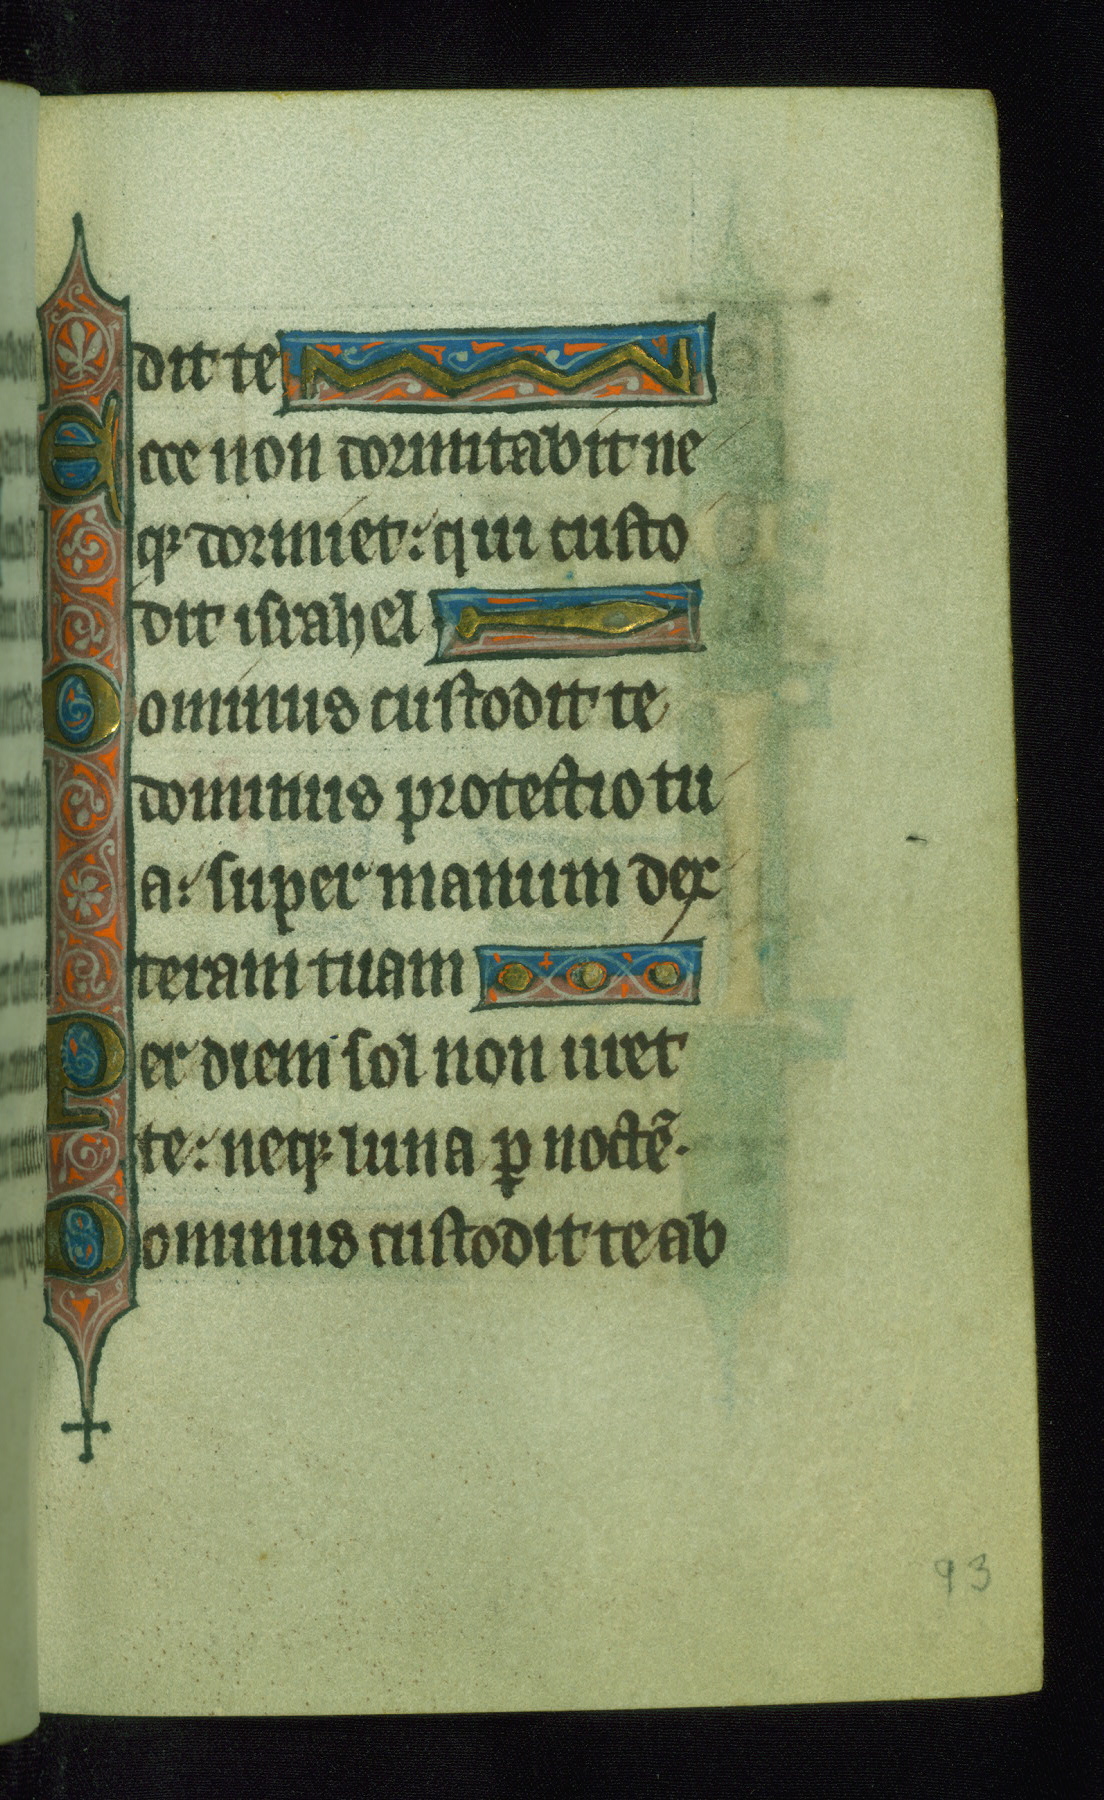 dit te
Ecce non dormitabit ne
qꝫ dormiet: qui custo
dit israhel
Dominus custodit te
dominus protectio tu
a: super manum dex
teram tuam
Per diem sol non uret
te: neqꝫ luna ꝑ noctē.
Dominus custodit te ab
93